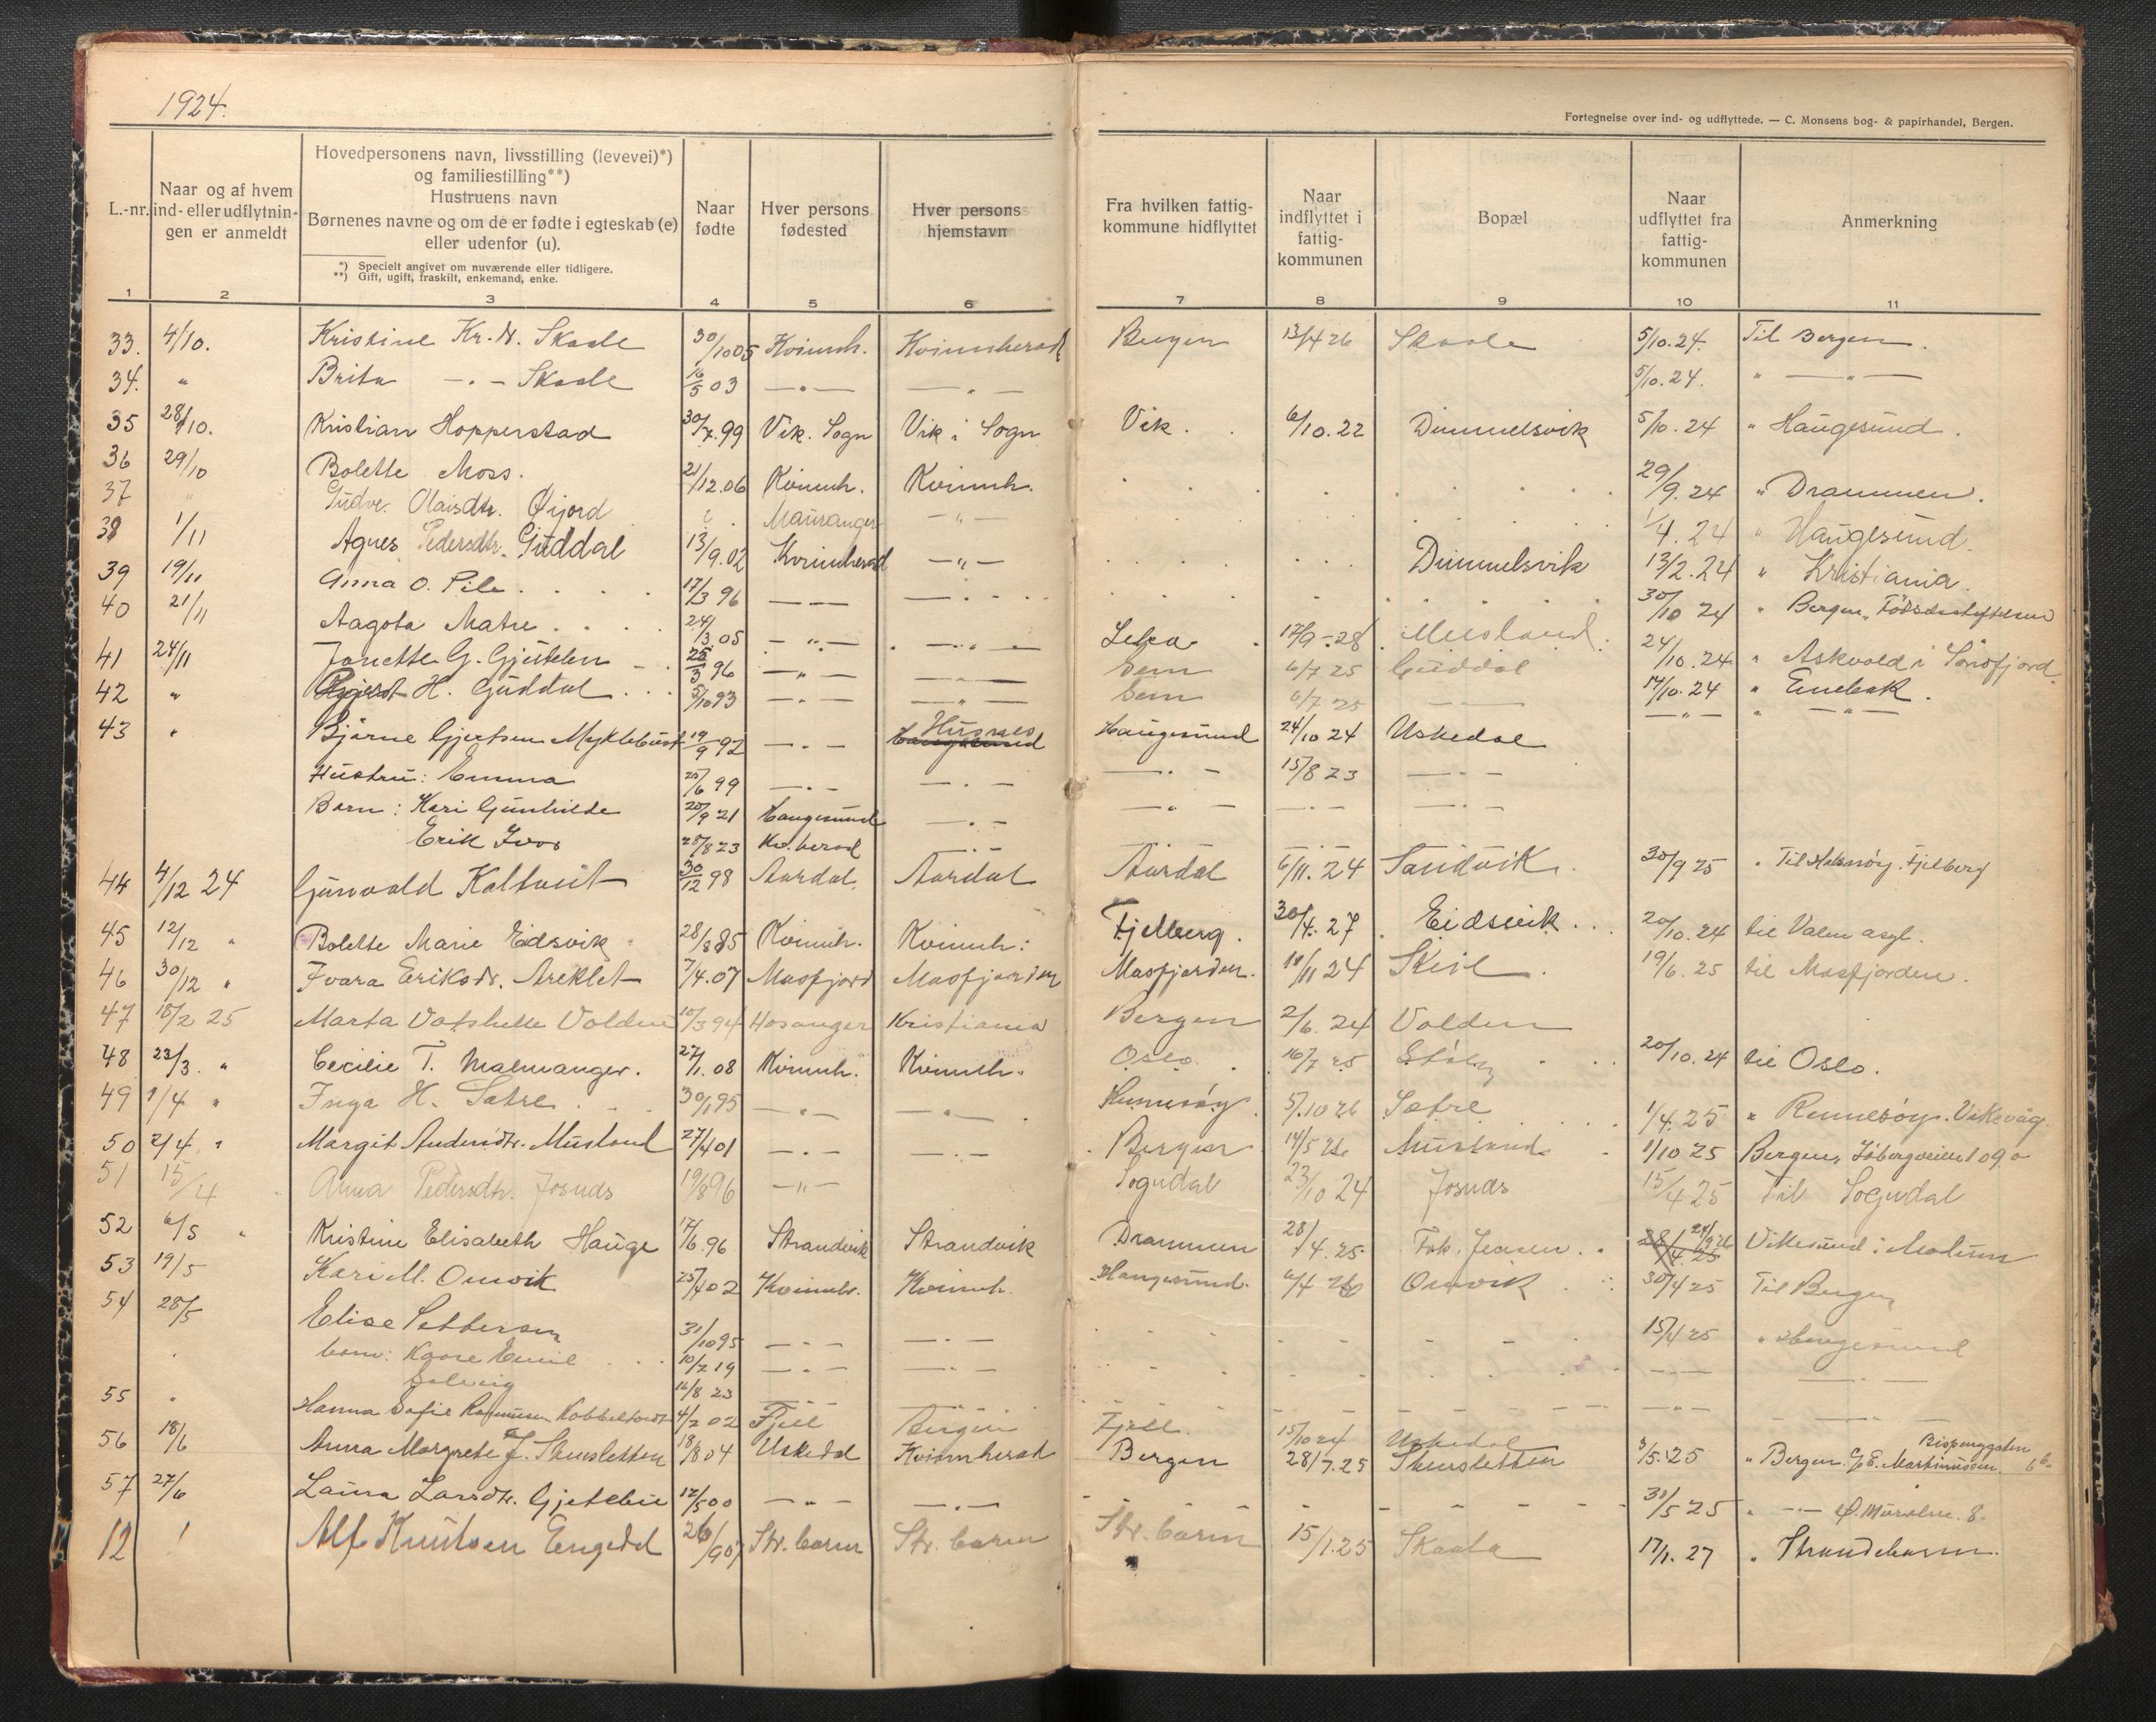 1924.
Fortegnelse over ind- og udflyttede. — C. Monsens bog- & papirhandel, Bergen.
L.-nr.
Naar og af hvem ind- eller udflytnin-gen er anmeldt
Hovedpersonens navn, livsstilling (levevei)*)
og familiestilling**)
Hustruens navn
Børnenes navne og om de er fødte i egteskab (e)
eller udenfor (u).
*) Specielt angivet om nuværende eller tidligere.
**) Gift, ugift, fraskilt, enkemand, enke.
Naar fødte
Hver persons fødested
Hver persons hjemstavn
Fra hvilken fattig-kommune hidflyttet
Naar indflyttet i fattig-kommunen
Bopæl
Naar udflyttet fra fattig-kommunen
Anmerkning
1 2 3 4 5 6 7 8 9 10 11
33. 4/10. Kristine Kr. dr. Skaale 30/10 05 Kvinnh. Kvinnherad Bergen 13/4 26 Skaale 5/10.24. Til Bergen.
34. " Brita —"— Skaale 16/5 03 —"— —"— 5/10.24. " —"—
35 28/10. Kristian Hopperstad 30/7.99 Vik. Sogn Vik i Sogn Vik. 6/10.22 Dimmelsvik 5/10.24 " Haugesund.
36 29/10 Bolette Moss. 21/12.06 Kvinnh. Kvinnh. 29/9.24 " Drammen.
37 " Gudve. Olaisdtr. Øijord Mauranger —"— 1/4.24 " Haugesund.
38 1/11 Agnes Pedersdtr. Guddal 13/9.02 Kvinnherad —"— Dimmelsvik 13/2.24 " Kristiania.
39 19/11 Anna O. Pile 17/3 96 —— —— 30/10 24 " Bergen,
40 21/11 Aagota Matre 24/3.05 —"— —"— 17/9-28 Musland. 24/10.24 " Askvold i Søndfjord
41 24/11 G. 25/3 96 —"— —— Sem 6/7 25 Guddal 14/10.24 " Enebak.
42 " H. Guddal 5/10 93 —"— —"— Sem 6/7 25 —— —"— " —"—
43 " Bjarne Gjertsen Myklebust 19/9 92 —"— Husnes Haugesund Haugesund 24/10 24 Uskedal
Hustru: Emma 25/6 99 —"— —"— —"— 15/8 23 —"—
Barn: Kari Gunhilde 20/9 21 Haugesund —"— —"— —"— —"—
Erik Ivar 28/8 23 Kv.herad —"— —"— —"— —"—
44 4/12 24 Gunvald Kaltveit 30/12 98 Aardal. Aardal Aardal 6/11.24 Sandvik. 30/9 25 " Til Halsnøy. Fjelberg
45 12/12 " Bolette Marie Eidsvik 28/8 85 Kvinnh. Kvinnh: Fjelberg. 30/4.27 Eidsvik 20/10.24 til Valen asyl.
46 30/12 " Ivara Eriksdr. Areklet 7/4.07 Masfjord Masfjorden Masfjorden. 10/11 24 Skeil. 19/6.25 til Masfjorden.
47 18/2 25 Marta Votshelle Volden 10/3 94 Hosanger Kristiania Bergen 2/6.24 Volden
48 23/3. " Cecilie T. Malmanger. 27/1.08 Kvinnh. Kvinnh. Oslo. 16/7 25 20/10.24 til Oslo.
49 1/4 " Inga H. Sætre 30/1 95 —"— —"— 5/10 26 Sætre 1/4.25 " Rennesøy. Vikevåg
50 2/4 " Margit Andersdtr. Musland 27/4 01 —"— —"— Bergen 14/5 26 Musland. 1/10 25 Bergen,
51 15/4 Anna Pedersdtr. Josnes 19/8 96 —"— Sogndal 23/10 24 Josnes 15/4 25 Til Sogndal
52 6/5 " Kristine Elisabeth Hauge 17/6.96 Strandvik Strandvik Drammen 28/4.25. Frk. Jensen. 28/4.25 Vikesund i Modum
53 19/5 Kari M. Omvik 25/4 02 Kvinnh. Kvinnh. Haugesund. 6/4 26 Omvik 30/4 25 Til Bergen
54 28/5 Elise Pettersen 31/10 95 —"— —"— 15/4 25 " Haugesund
barn: Kaare Emil 10/2 19 —"— —"— —"— —"—
Solveig 16/8 23 —"— —"— —"— —"—
55 " Hanna Sofie Rasmussen Kobbeltvedt 4/2 02 Fjell Bergen Fjell. 15/10 24 Uskedal
56 18/6 Anna Margrete J. Skeisletten 18/8 04 Uskedal Kvinnherad Bergen 28/7.25 Skeisletten 3/5.25 " Bergen. C/o E. Martinussen.
57 27/6 Laura Larsdtr. Gjetebø 12/5 00 —"— —"— 31/5 25 " —"—
12 ! Alf Knutsen Engedal Str.barm Str. barm Str. barm 15/1.25 Skaala 17/1.27 " Strandebarm.